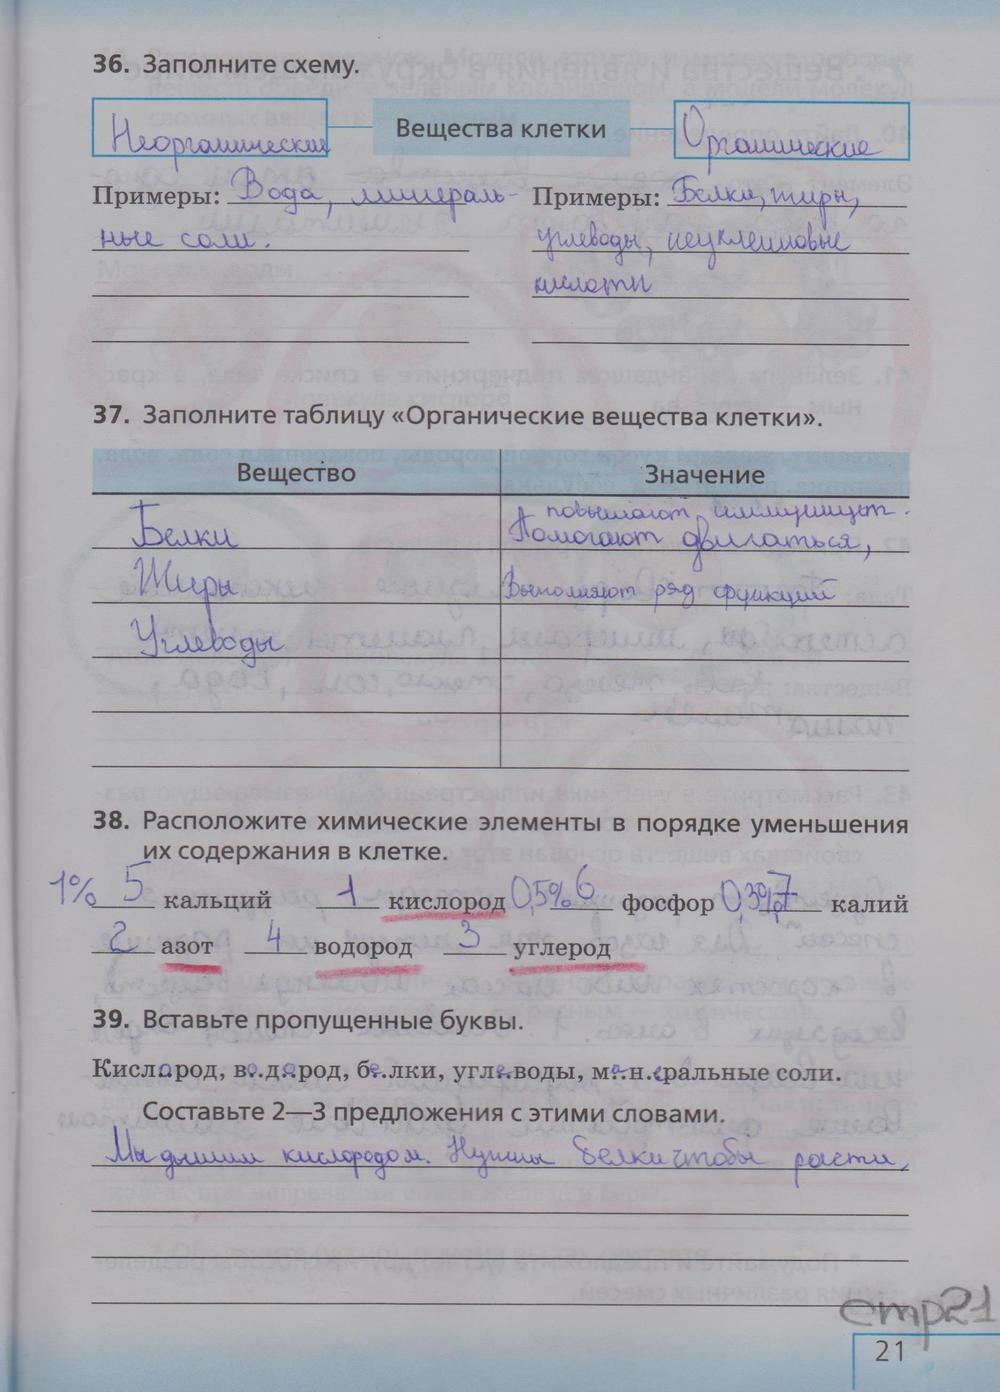 36. Заполните схему.
Неорганические Вещества клетки Органические
Примеры: Вода, минераль-
ные соли.
Примеры: Белки, жиры,
углеводы, неуклеиновые
кислоты
37. Заполните таблицу «Органические вещества клетки».
Вещество Значение
повышают иммунитет.
Белки Помогают двигаться,
Жиры Выполняют ряд функций
Углеводы
38. Расположите химические элементы в порядке уменьшения
их содержания в клетке.
1% 5 кальций 1 кислород 0,5% 6 фосфор 0,3% 7 калий
2 азот 4 водород 3 углерод
39. Вставьте пропущенные буквы.
Кислород, водород, белки, углеводы, минеральные соли.
Составьте 2—3 предложения с этими словами.
Мы дышим кислородом. Нужны белки чтобы расти,
стр21
21